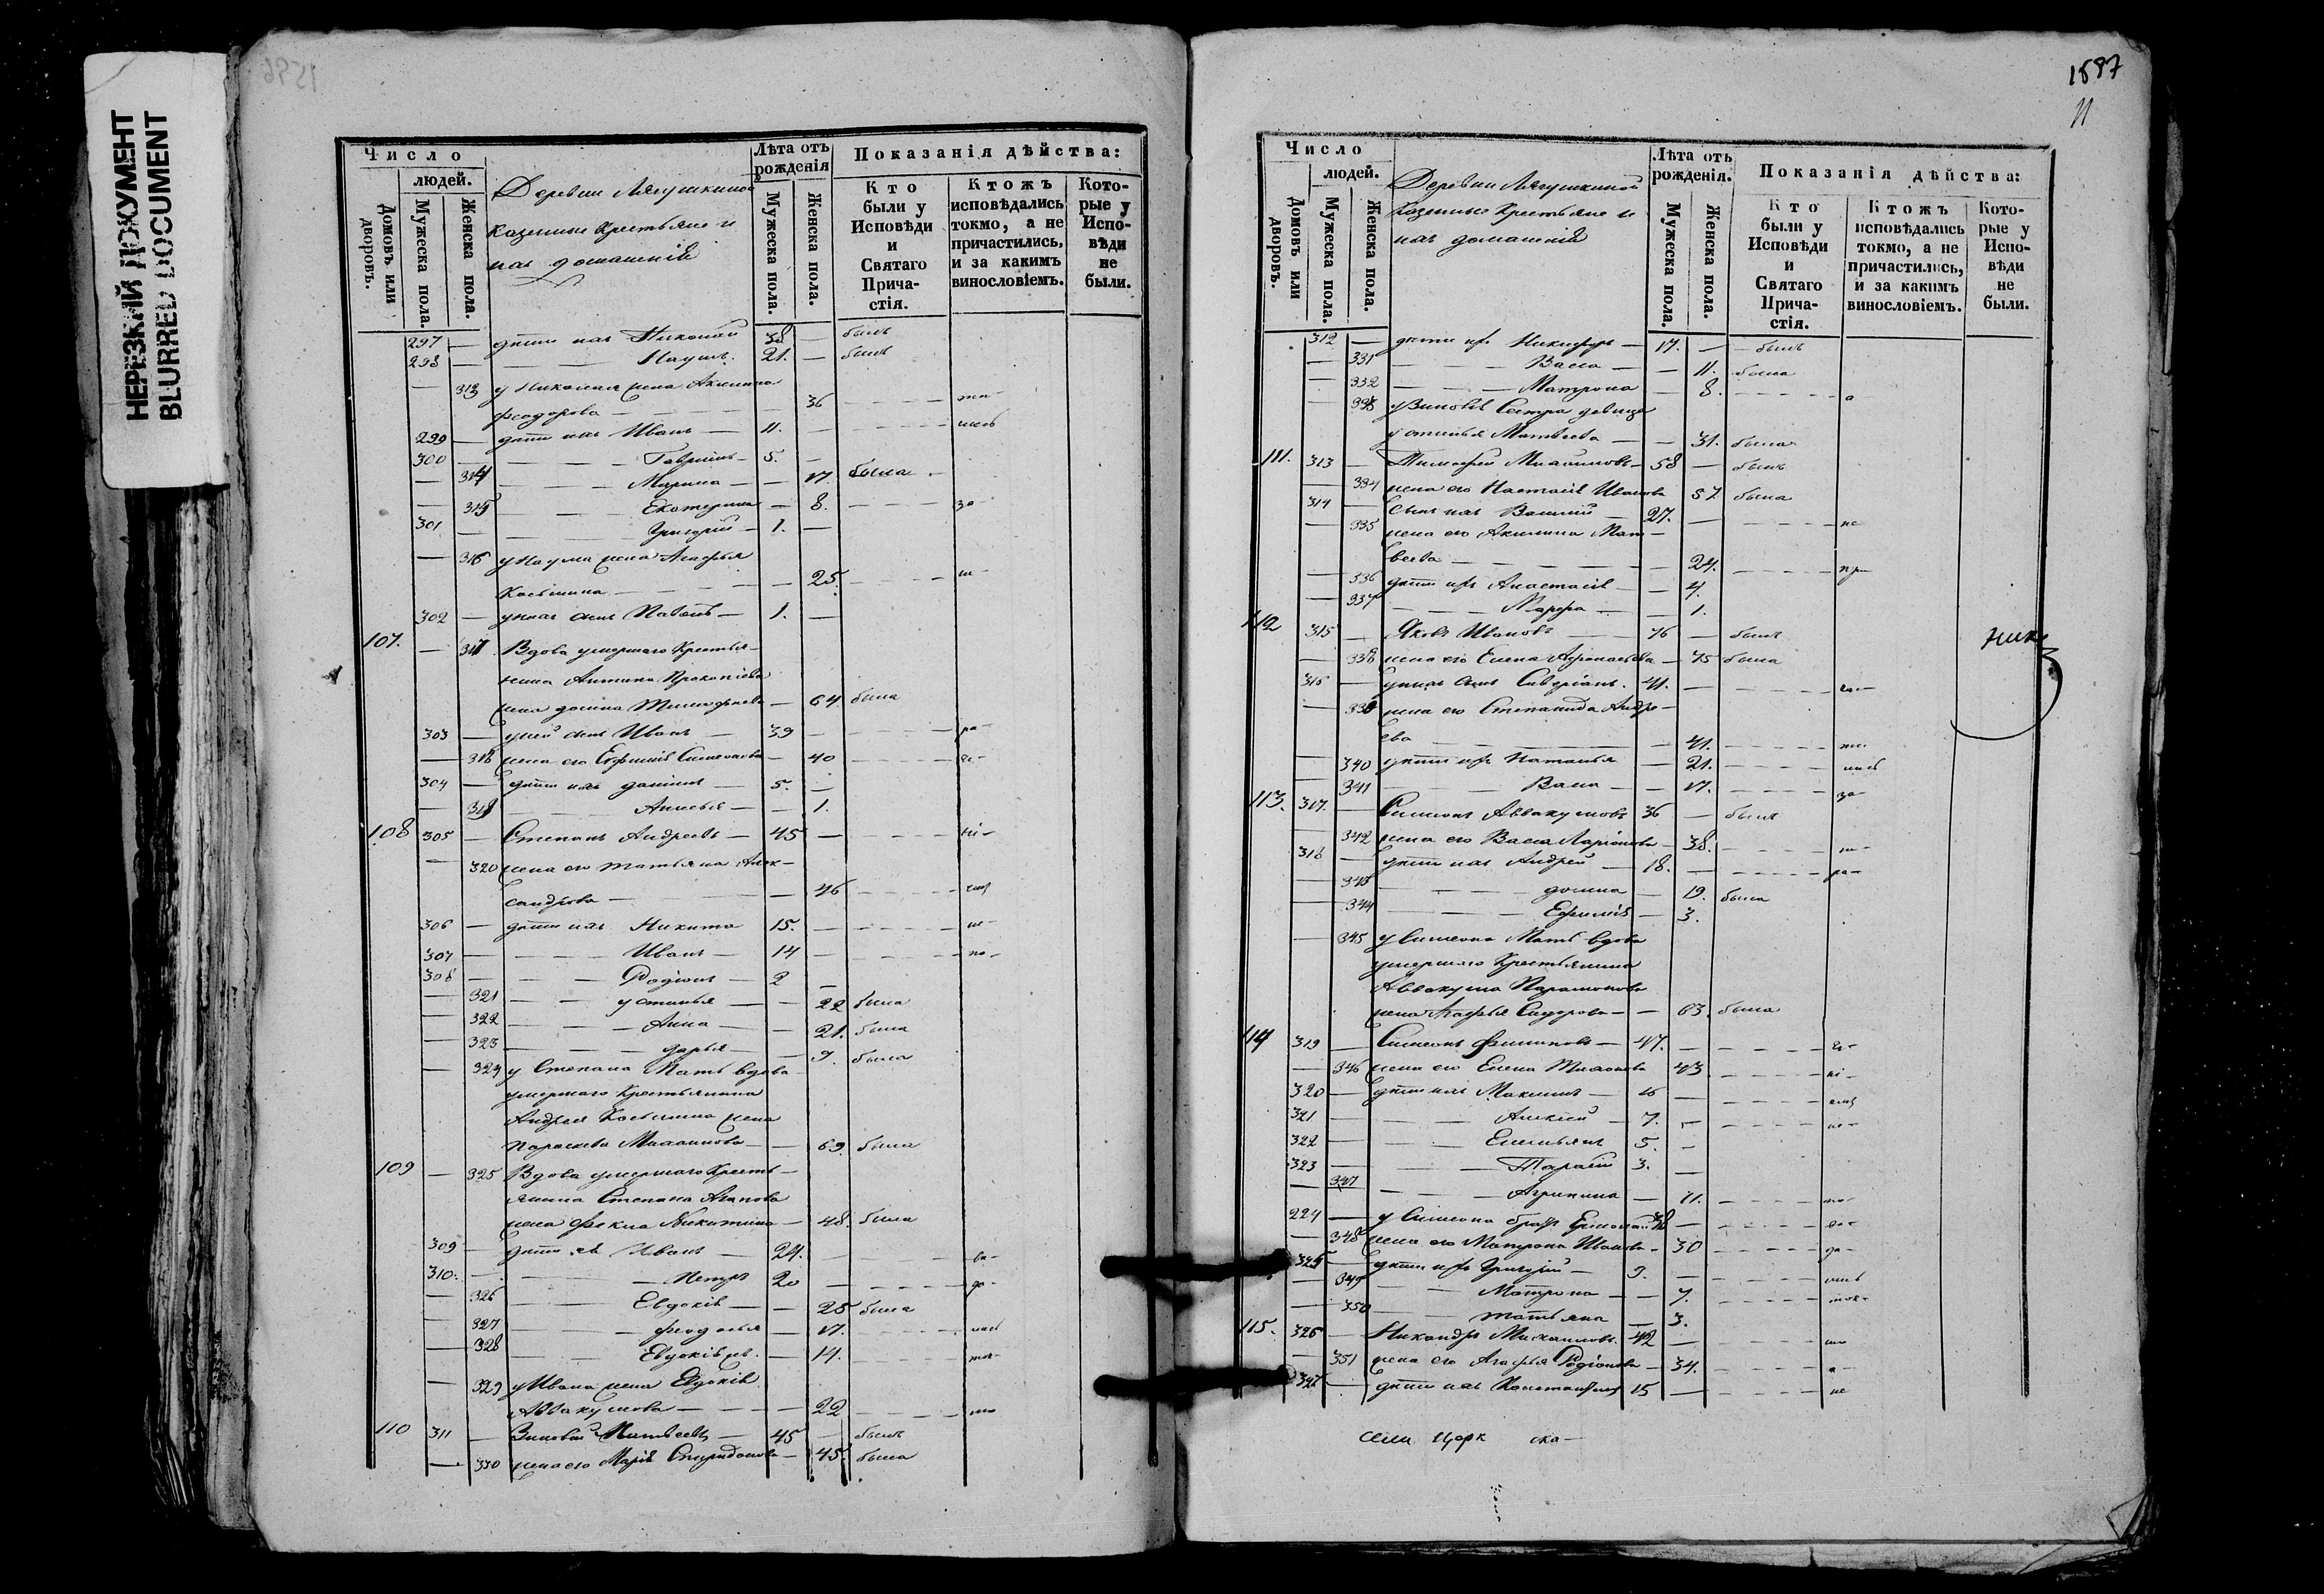 НЕРЕЗКИЙ ДОКУМЕНТ
BLURRED DOCUMENT
Число
людей.
Домовъ или дворовъ.
Мужеска пола.
Женска пола.
Деревни Лягушкиной
казенные крестьяне и
ихъ домашніе
Лѣта отъ рожденія
Мужеска пола.
Женска пола.
Показанія дѣйства:
Кто были у Исповѣди и Святаго Прича-стія.
Ктожъ исповѣдались токмо, а не причастились, и за какимъ винословіемъ.
Кото-рые у Испо-вѣди не были.
297 — дѣти ихъ Николай 38 — былъ
298 — Наумъ 21. — былъ
— 313 у Николая жена Акилина
Феодорова — 36
299 — дѣти ихъ Иванъ — 11. —
300 — Гавріилъ 5. —
— 314 Марина — 17. была
— 315 Екатерина — 8. за-
301 — Григорій — 1. —
— 316 у Наума жена Агафья
Косьмина — 25.
302 — у нихъ сынъ Павелъ — 1. —
107. — 317 Вдова умершаго Крестья-
нина Антипа Прокопіева
жена Домна Тимофеева — 64 была
303 — у ней сынъ Иванъ — 39 — ра-
— 318 жена его Евфимія Симеонова — 40
304 — дѣти ихъ Даніилъ 5. —
— 319 Анисья — 1.
108 305 — Степанъ Андреевъ — 45 — ні-
— 320 жена его Татьяна Алек-
сандрова — 46
306 — дѣти ихъ Никита 15. —
307 — Иванъ — 14 — по-
308 — Родіонъ 2 —
— 321 Устинья — 22 была
— 322 Анна — 21. была
— 323 Дарья — 9. была
— 324 у Степана Мать вдова
умершаго Крестьянина
Андрея Косьмина жена
Параскева Михайлова — 69. была
109 — 325 Вдова умершаго Кресть-
янина Степана Агапова
жена Фекла Никитина — 48. была
309 — дѣти ея Иванъ — 24. —
310. — Петръ 20 — до-
— 326 Евдокія — 25 была
— 327 Феодосья — 17.
— 328 Евдокія — 14. ток-
— 329 у Ивана жена Евдокія
Аввакумова — 22
110 311 — Зиновій Матвеевъ — 45 — былъ
— 330 жена его Марія Спиридонова — 45. была
1587
11
Число
людей.
Домовъ или дворовъ.
Мужеска пола.
Женска пола.
Деревни Лягушкиной
Казенные Крестьяне и
ихъ домашніе
Лѣта отъ рожденія.
Мужеска пола.
Женска пола.
Показанія дѣйства:
Кто были у Исповѣди и Святаго Прича-стія.
Ктожъ исповѣдались токмо, а не причастились, и за какимъ винословіемъ.
Кото-рые у Испо-вѣди не были.
312 — дѣти ихъ Никифоръ — 17. — былъ
— 331 Васса — 11. была
— 332 Матрона — 8. а
— 333 у Зиновія Сестра девица
Устинья Матвеева — 31. была
111. 313 — Тимофей Михайловъ — 58 — былъ
— 334 жена его Настасія Иванова 57 была
314 — Сынъ ихъ Василій — 27. — не
— 335 жена его Акилина Мат-
веева — 24. при
— 336 дѣти ихъ Анастасія — 4.
— 337 Марфа — 1.
112 315 — Яковъ Ивановъ 76 — былъ
— 338 жена его Елена Афанасьева — 75 была
316 — у нихъ сынъ Северіанъ. 41. —
— 339 жена его Степанида Андре-
ева — 41.
— 340 дѣти ихъ Наталья — 21.
— 341 Васса — 17. за-
113. 317. — Симеонъ Аввакумовъ 36 — былъ
— 342 жена его Васса Ларіонова — 38.
318 — дѣти ихъ Андрей — 18. — ра-
343 Домна — 19. была
344 Ефимія — 3.
— 345 у Симеона Мать вдова
умершаго Крестьянина
Аввакума Парамонова
жена Агафья Сидорова — 63. была
114 319 — Симеонъ Филиповъ — 47. —
— 346 жена его Елена Михайлова 43 ні-
320 — дѣти ихъ Максимъ — 16 —
321 — Алексій — 7. —
322 — Емельянъ 5. —
323 — Тарасій 3. —
— 347 Агрипина — 11.
224 — у Симеона братъ Ермолай 38 —
— 348 жена его Матрона Иванова — 30 до-
325 — дѣти ихъ Григорій — 9. —
— 349 Матрона — 7. ток-
— 350 Татьяна — 3.
115. 326 — Никандръ Михайловъ. 42 —
— 351 жена его Агафья Родіонова — 34. а-
327 — дѣти ихъ Константинъ 15 — не